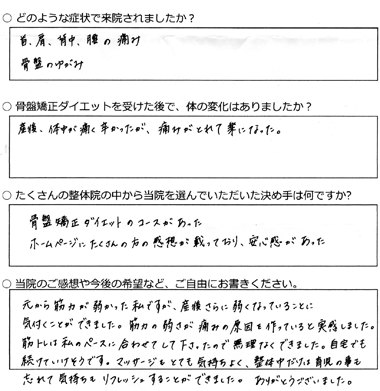 ○ どのような症状で来院されましたか？
首、肩、背中、腰の痛み
骨盤のゆがみ
○ 骨盤矯正ダイエットを受けた後で、体の変化はありましたか？
産後、体中が痛く辛かったが、痛みがとれて楽になった。
○ たくさんの整体院の中から当院を選んでいただいた決め手は何ですか?
骨盤矯正ダイエットのコースがあった
ホームページにたくさんの方の感想が載っており、安心感があった
○ 当院のご感想や今後の希望など、ご自由にお書きください。
元から筋力が弱かった私ですが、産後さらに弱くなっていることに
気付くことができました。筋力の弱さが痛みの原因を作っていると実感しました。
筋トレは私のペースに合わせてして下さったので無理なくできました。自宅でも
続けていけそうです。マッサージもとても気持ちよく、整体中だけは育児の事も
忘れて気持ちもリフレッシュすることができました。ありがとうございました。